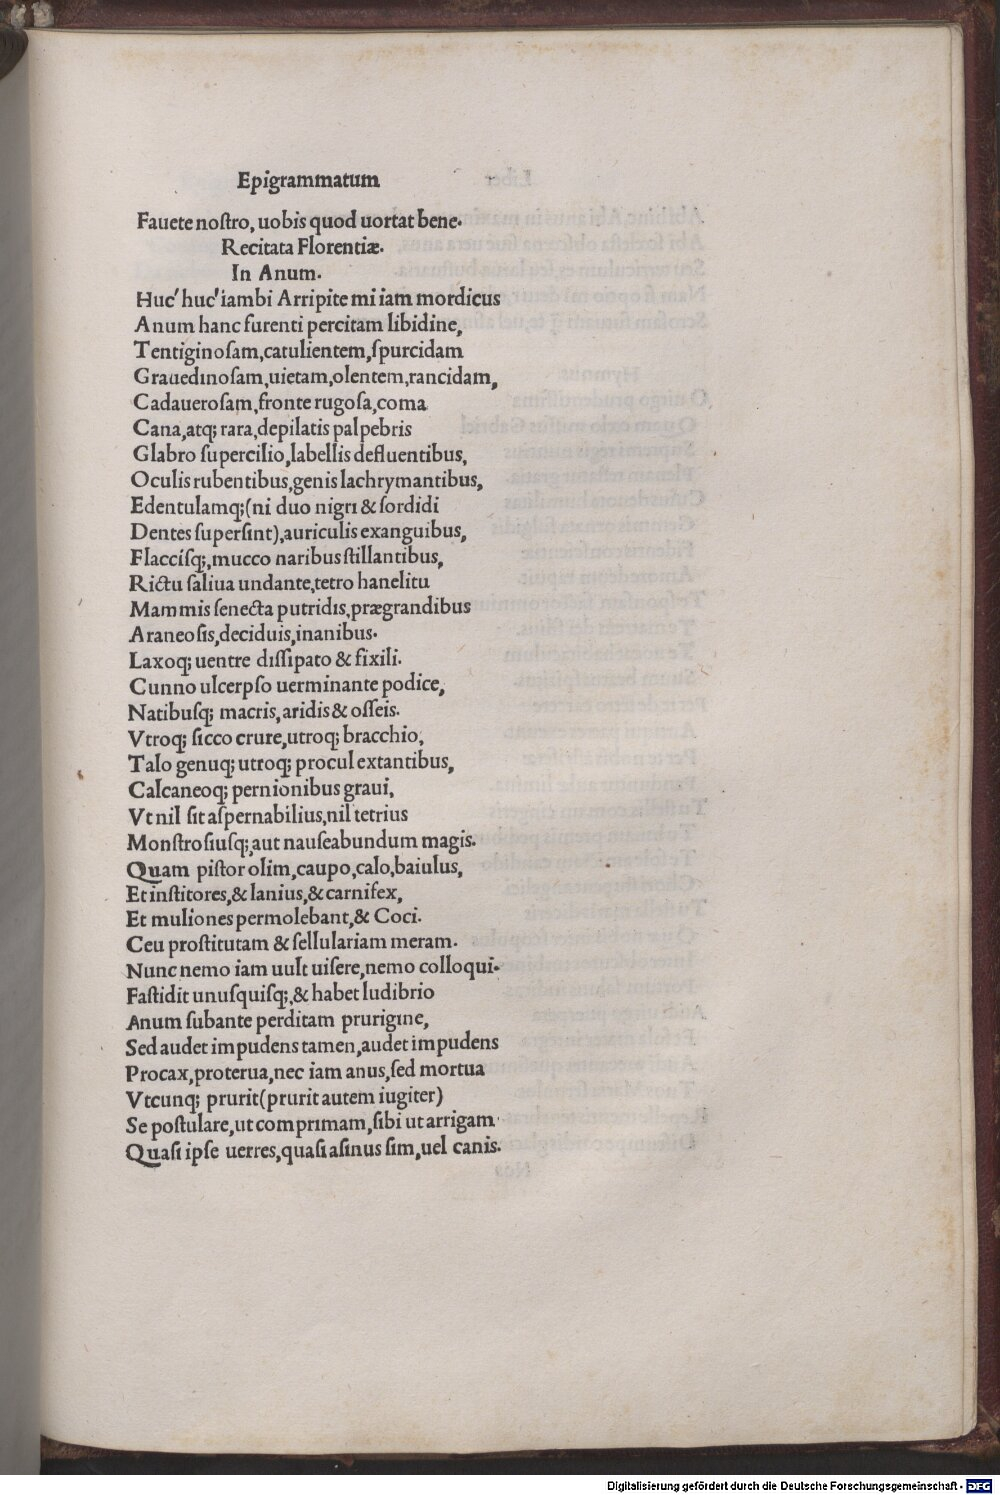 Epigrammatum
Fauete nostro, uobis quod uortat bene.
Recitata Florentiæ.
In Anum.
Huc' huc' iambi Arripite mi iam mordicus
Anum hanc furenti percitam libidine,
Tentiginosam,catulientem,spurcidam
Grauedinosam,uietam,olentem,rancidam,
Cadauerosam,fronte rugosa,coma
Cana,atq; rara,depilatis palpebris
Glabro supercilio,labellis defluentibus,
Oculis rubentibus,genis lachrymantibus,
Edentulamq;(ni duo nigri & sordidi
Dentes supersint),auriculis exanguibus,
Flaccisq;,mucco naribus stillantibus,
Rictu saliua undante,tetro hanelitu
Mammis senecta putridis,prægrandibus
Araneosis,deciduis,inanibus.
Laxoq; uentre dissipato & fixili.
Cunno ulcerpso uerminante podice,
Natibusq; macris,aridis & osseis.
Vtroq; sicco crure,utroq; bracchio,
Talo genuq; utroq; procul extantibus,
Calcaneoq; pernionibus graui,
Vt nil sit aspernabilius,nil tetrius
Monstrosiusq;,aut nauseabundum magis.
Quam pistor olim,caupo,calo,baiulus,
Et institores,& lanius,& carnifex,
Et muliones permolebant,& Coci.
Ceu prostitutam & sellulariam meram.
Nunc nemo iam uult uisere,nemo colloqui.
Fastidit unusquisq;,& habet ludibrio
Anum subante perditam prurigine,
Sed audet impudens tamen,audet impudens
Procax,proterua,nec iam anus,sed mortua
Vtcunq; prurit(prurit autem iugiter)
Se postulare,ut comprimam,sibi ut arrigam
Quasi ipse uerres,quasi asinus sim,uel canis.
Digitalisierung gefördert durch die Deutsche Forschungsgemeinschaft - DFG